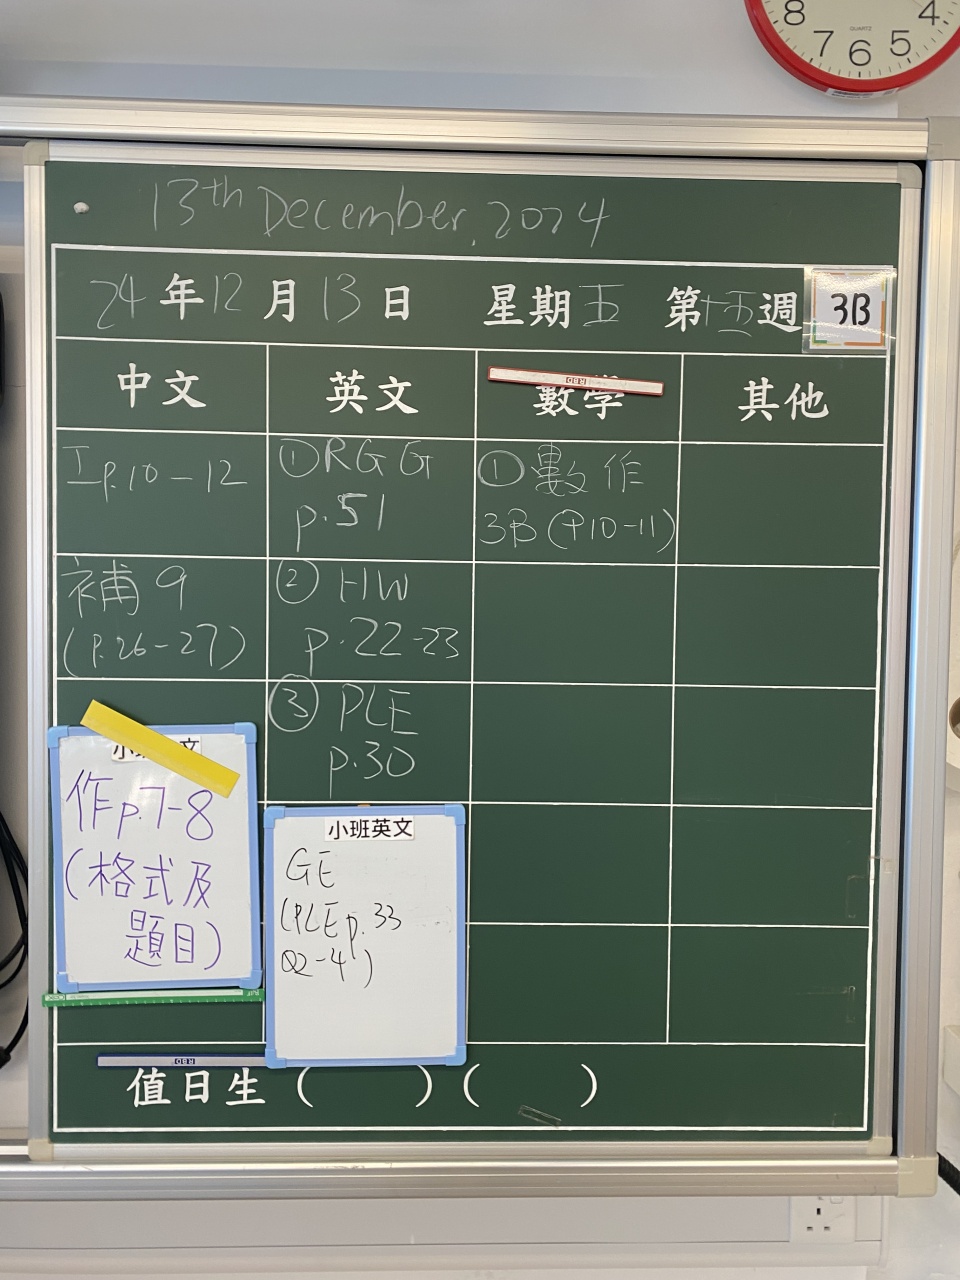 8 7 6 5 4
QUARTZ
13th December, 2024
24年12月13日 星期五 第十五週
3B
中文 英文 數學 其他
RBD
工p.10-12
① RGG
p.51
① 數作
3B (P10-11)
補9
(p.26-27)
② HW
p.22-23
③ PLE
p.30
小班 文
作p.7-8
(格式及
題目)
小班英文
GE
(PLE p.33
Q2-4)
RBD
值日生 ( ) ( )